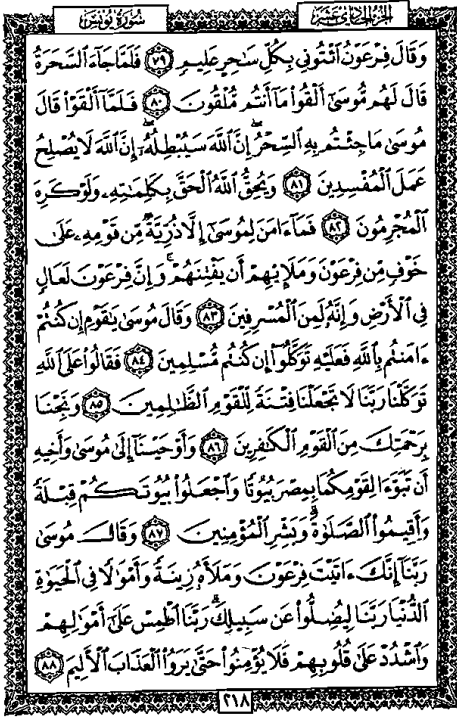 سورة يونس
الجزء الحادي عشر
وَقَالَ فِرْعَوْنُ ٱئْتُونِي بِكُلِّ سَٰحِرٍ عَلِيمٍ ٧٩ فَلَمَّا جَآءَ ٱلسَّحَرَةُ
قَالَ لَهُم مُّوسَىٰٓ أَلْقُوا۟ مَآ أَنتُم مُّلْقُونَ ٨٠ فَلَمَّآ أَلْقَوْا۟ قَالَ
مُوسَىٰ مَا جِئْتُم بِهِ ٱلسِّحْرُ إِنَّ ٱللَّهَ سَيُبْطِلُهُۥٓ إِنَّ ٱللَّهَ لَا يُصْلِحُ
عَمَلَ ٱلْمُفْسِدِينَ ٨١ وَيُحِقُّ ٱللَّهُ ٱلْحَقَّ بِكَلِمَٰتِهِۦ وَلَوْ كَرِهَ
ٱلْمُجْرِمُونَ ٨٢ فَمَآ ءَامَنَ لِمُوسَىٰٓ إِلَّا ذُرِّيَّةٌ مِّن قَوْمِهِۦ عَلَىٰ
خَوْفٍ مِّن فِرْعَوْنَ وَمَلَإِي۟هِمْ أَن يَفْتِنَهُمْ ۚ وَإِنَّ فِرْعَوْنَ لَعَالٍ
فِي ٱلْأَرْضِ وَإِنَّهُۥ لَمِنَ ٱلْمُسْرِفِينَ ٨٣ وَقَالَ مُوسَىٰ يَٰقَوْمِ إِن كُنتُمْ
ءَامَنتُم بِٱللَّهِ فَعَلَيْهِ تَوَكَّلُوٓا۟ إِن كُنتُم مُّسْلِمِينَ ٨٤ فَقَالُوا۟ عَلَى ٱللَّهِ
تَوَكَّلْنَا رَبَّنَا لَا تَجْعَلْنَا فِتْنَةً لِّلْقَوْمِ ٱلظَّٰلِمِينَ ٨٥ وَنَجِّنَا
بِرَحْمَتِكَ مِنَ ٱلْقَوْمِ ٱلْكَٰفِرِينَ ٨٦ وَأَوْحَيْنَآ إِلَىٰ مُوسَىٰ وَأَخِيهِ
أَن تَبَوَّءَا لِقَوْمِكُمَا بِمِصْرَ بُيُوتًا وَٱجْعَلُوا۟ بُيُوتَكُمْ قِبْلَةً
وَأَقِيمُوا۟ ٱلصَّلَوٰةَ ۗ وَبَشِّرِ ٱلْمُؤْمِنِينَ ٨٧ وَقَالَ مُوسَىٰ
رَبَّنَآ إِنَّكَ ءَاتَيْتَ فِرْعَوْنَ وَمَلَأَهُۥ زِينَةً وَأَمْوَٰلًا فِي ٱلْحَيَوٰةِ
ٱلدُّنْيَا رَبَّنَا لِيُضِلُّوا۟ عَن سَبِيلِكَ ۖ رَبَّنَا ٱطْمِسْ عَلَىٰٓ أَمْوَٰلِهِمْ
وَٱشْدُدْ عَلَىٰ قُلُوبِهِمْ فَلَا يُؤْمِنُوا۟ حَتَّىٰ يَرَوُا۟ ٱلْعَذَابَ ٱلْأَلِيمَ ٨٨
٢١٨